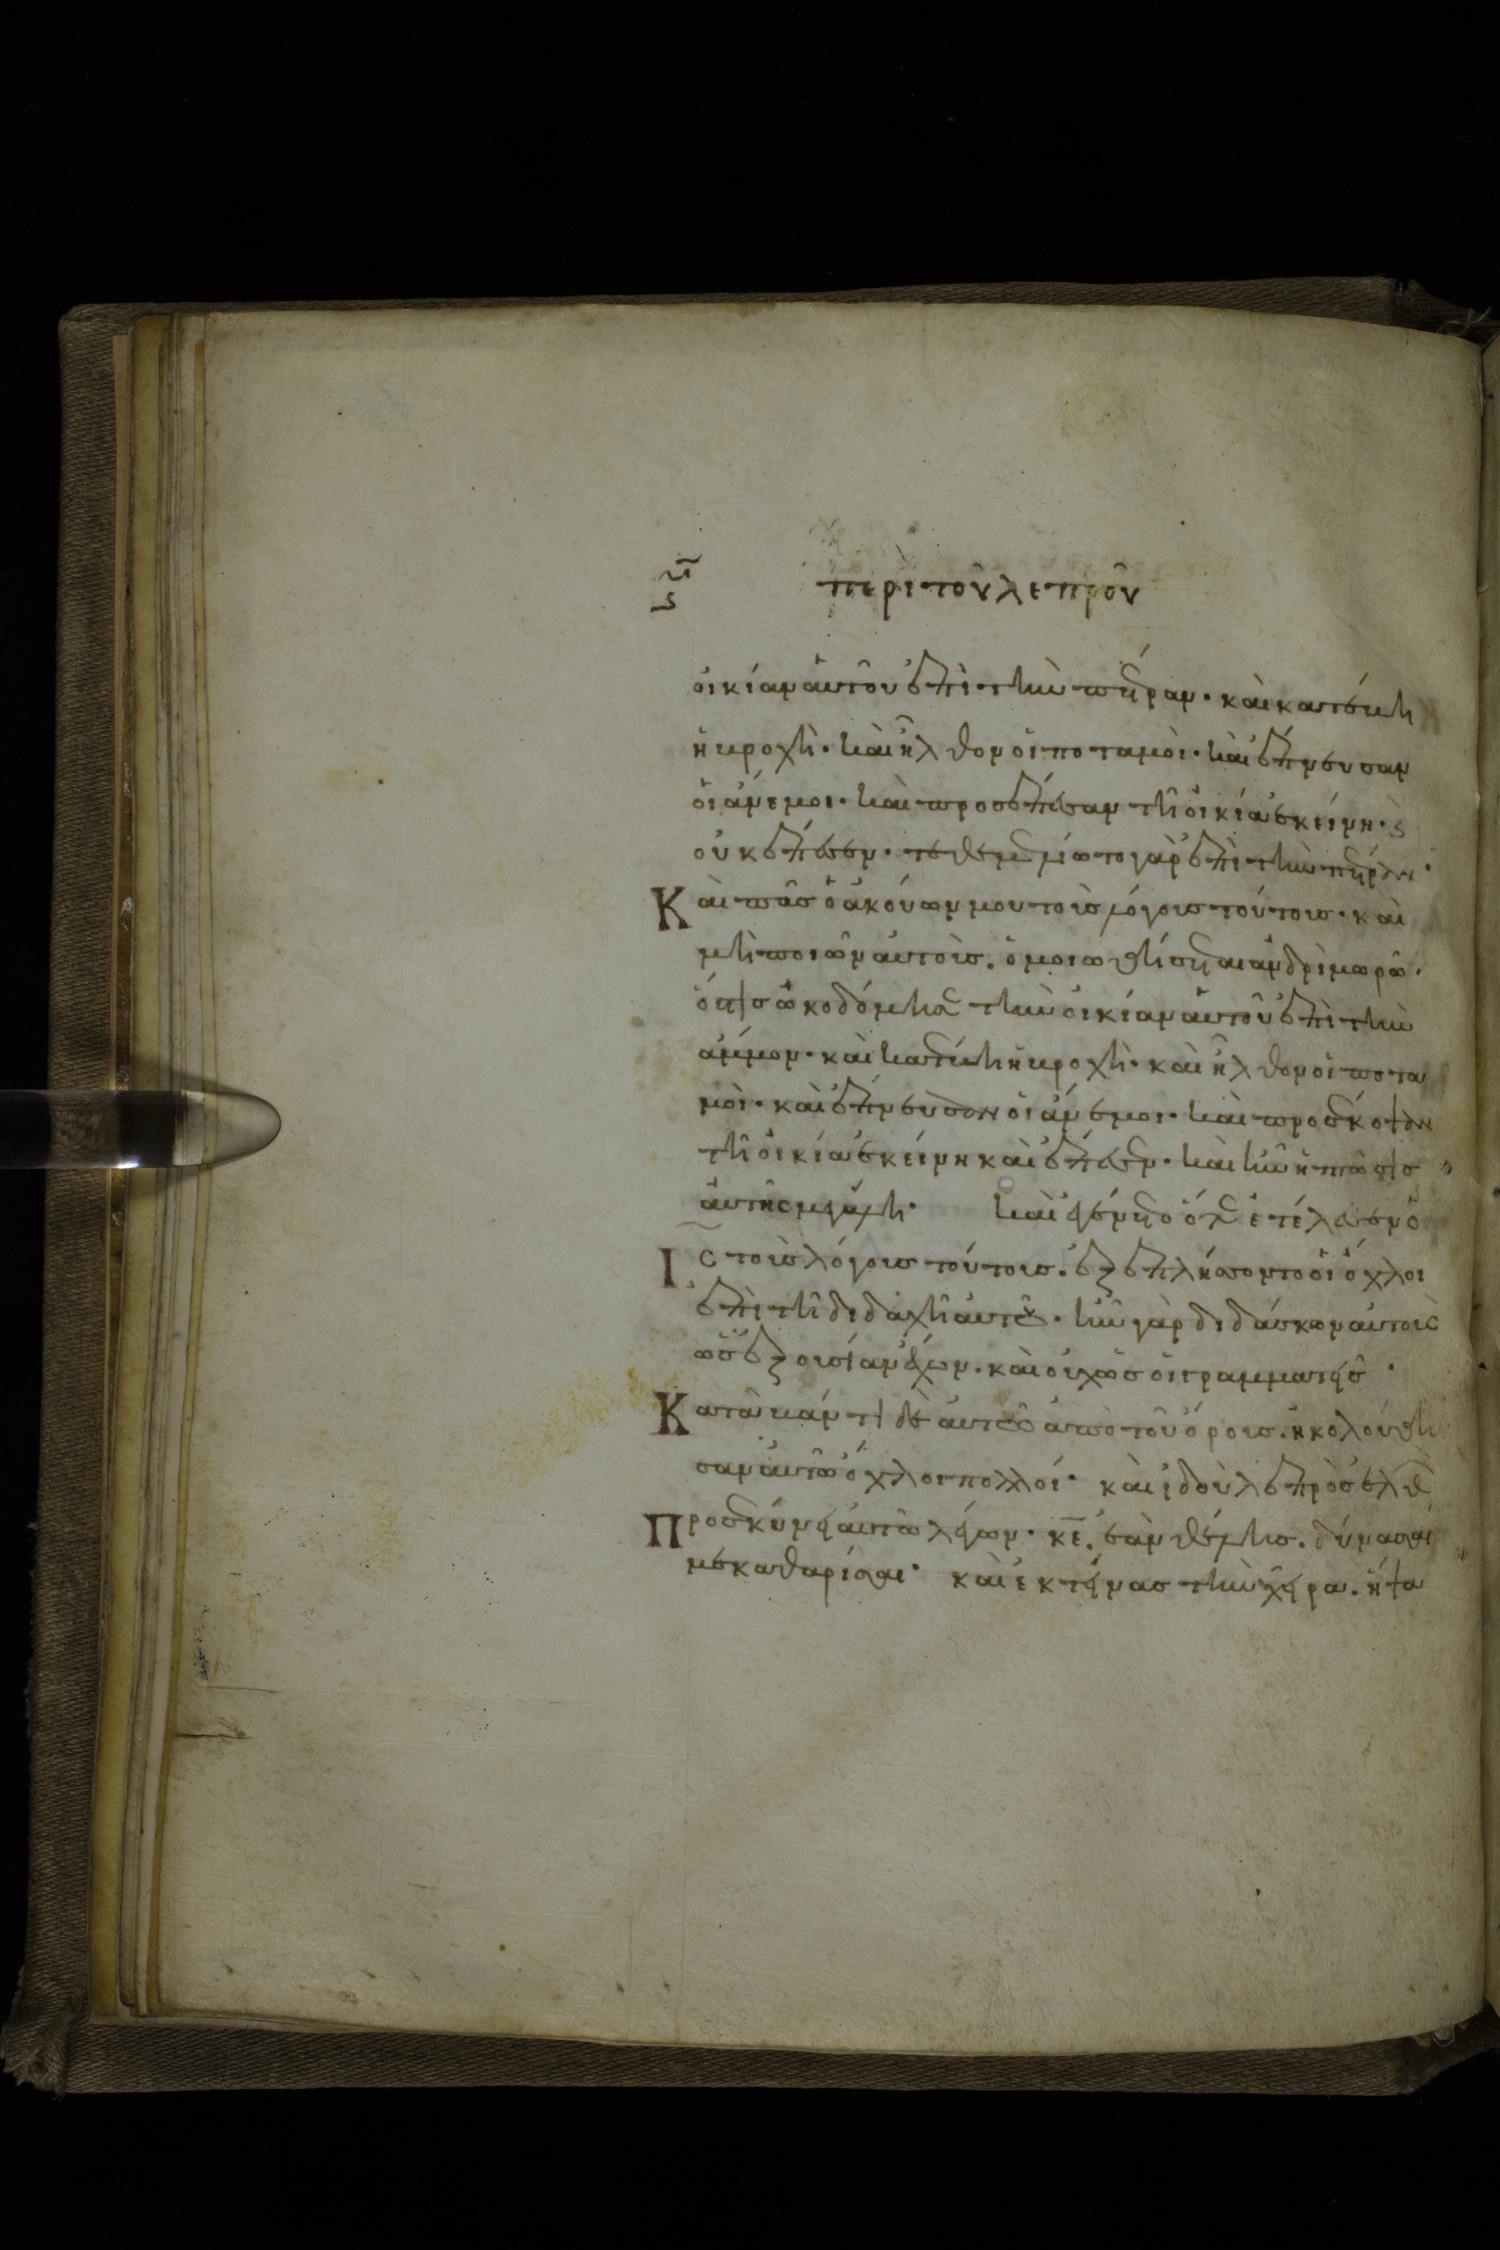 περὶ τοῦ λεπροῦ
οἰκίαν αὐτοῦ ἐπὶ τὴν πέτραν· καὶ κατέβη
ἡ βροχὴ· καὶ ἦλθον οἱ ποταμοὶ· καὶ ἔπνευσαν
οἱ ἄνεμοι· καὶ προσέπεσαν τῆ οἰκία ἐκείνη· ϛ
οὐκ ἔπεσεν· τεθεμελίωτο γὰρ ἐπὶ τὴν πέτραν·
Καὶ πᾶσ ὁ ἀκούων μου τοὺσ λόγουσ τούτουσ· καὶ
μὴ ποιῶν αὐτοὺσ. ὁμοιωθήσεται ἀνδρὶ μωρῶ·
ὅστισ ὠκοδόμησε τὴν οἰκίαν αὐτοῦ ἐπὶ τὴν
ἄμμον· καὶ κατέβη ἡ βροχὴ· καὶ ἦλθον οἱ ποτα
μοὶ· καὶ ἔπνευσαν οἱ ἄνεμοι· καὶ προσέκοψαν
τῆ οἰκία ἐκείνη καὶ ἔπεσεν· καὶ ἦν ἡ πτῶσισ
αὐτῆς μεγάλη· καὶ ἐγένετο ὅτε ἐτέλεσεν ὁ
Ις τοὺσ λόγουσ τούτουσ. ἐξεπλήσσοντο οἱ ὄχλοι
ἐπὶ τῆ διδαχῆ αὐτοῦ· ἦν γὰρ διδάσκων αὐτοὺς
ὡσ ἐξουσίαν ἔχων. καὶ οὐχ ὡσ οἱ γραμματεῖσ·
Καταβάντι δὲ αὐτῶ ἀπὸ τοῦ ὄρουσ. ἠκολούθη
σαν αὐτῶ ὄχλοι πολλοί· καὶ ἰδοὺ λεπρὸσ ἐλθὼν
Προσεκύνει αὐτῶ λέγων· κε. ἐὰν θέλησ. δύνασαί
με καθαρίσαι· καὶ ἐκτείνασ τὴν χεῖρα. ἥψα